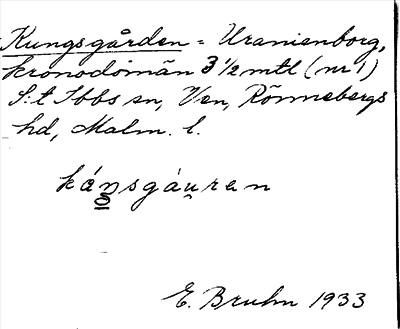 Kungsgården = Uranienborg,
kronodomän 3 1/2 mtl (nr 1)
S:t Ibbs sn, Ven, Rönnebergs
hd, Malm. l.
káṉsgáu̯ren
E. Bruhn 1933